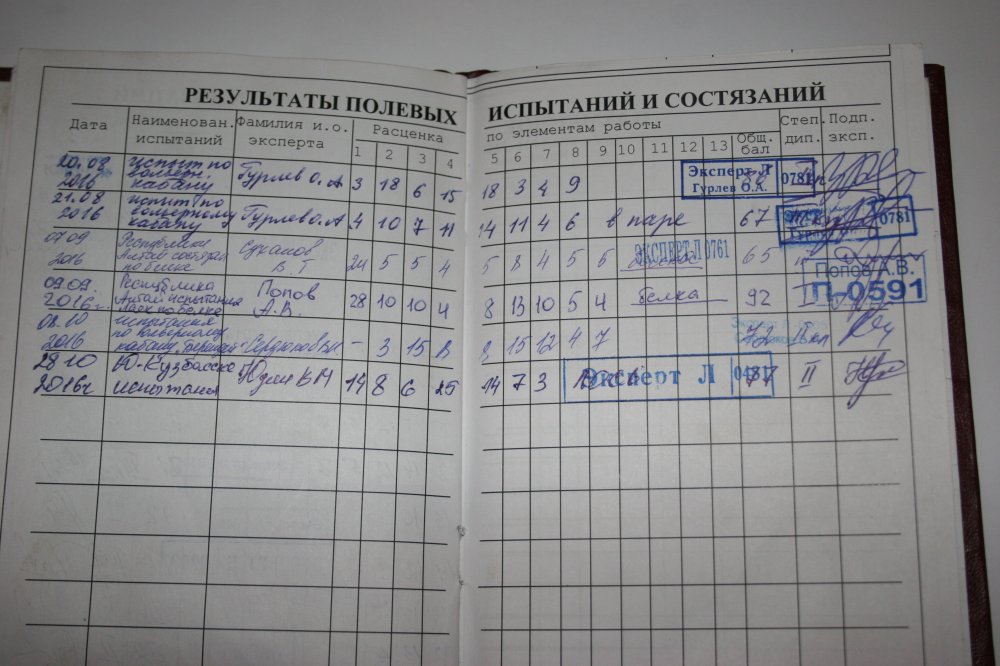 РЕЗУЛЬТАТЫ ПОЛЕВЫХ ИСПЫТАНИЙ И СОСТЯЗАНИЙ
Дата Наименован. испытаний Фамилия и.о. эксперта Расценка по элементам работы Общ. бал Степ. дип. Подп. эксп.
1 2 3 4 5 6 7 8 9 10 11 12 13
20.08 2016 испыт. по кабану Гурлев О.А 3 18 6 15 18 3 4 9
Эксперт Л Гурлев О.А. 0781
21.08 2016 испыт по вольерному кабану Гурлев О.А 4 10 7 11 14 11 4 6 в паре 67
0781
07.09 2016 Республика Алтай состязан по белке В.Т 24 5 5 4 5 8 4 5 5 65
ЭКСПЕРТ Л 0761
09.09. 2016г. Республика Алтай испытания лаек по белке Попов А.В. 28 10 10 4 8 13 10 5 4 белка 92 I
Попов А.В. П-0591
08.10 2016 испытания по вольерному кабану - 3 15 8 8 15 12 4 7 72
28 10 2016г Ю-Кузбасские испытания Юдин ВМ 14 8 6 25 14 7 3 77 II
Эксперт Л 0481